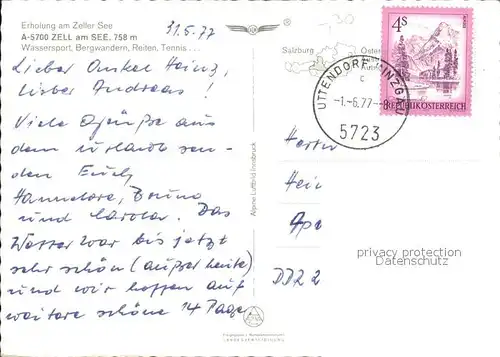 Erholung am Zeller See
A-5700 ZELL am SEE, 758 m
Wassersport, Bergwandern, Reiten, Tennis . . .
31.5.77
Lieber Onkel Heinz,
lieber Andreas !
Viele Grüße aus
dem Urlaub sen-
den Euch
Hannelore, Bruno
und Carola. Das
Wetter war bis jetzt
sehr schön (außer heute)
und wir hoffen auf
weitere schöne 14 Tage
Alpine Luftbild Innsbruck
Salzburg
4S
REPUBLIK ÖSTERREICH
UTTENDORF
-1.-6.77-8
5723
c
privacy protection
Datenschutz